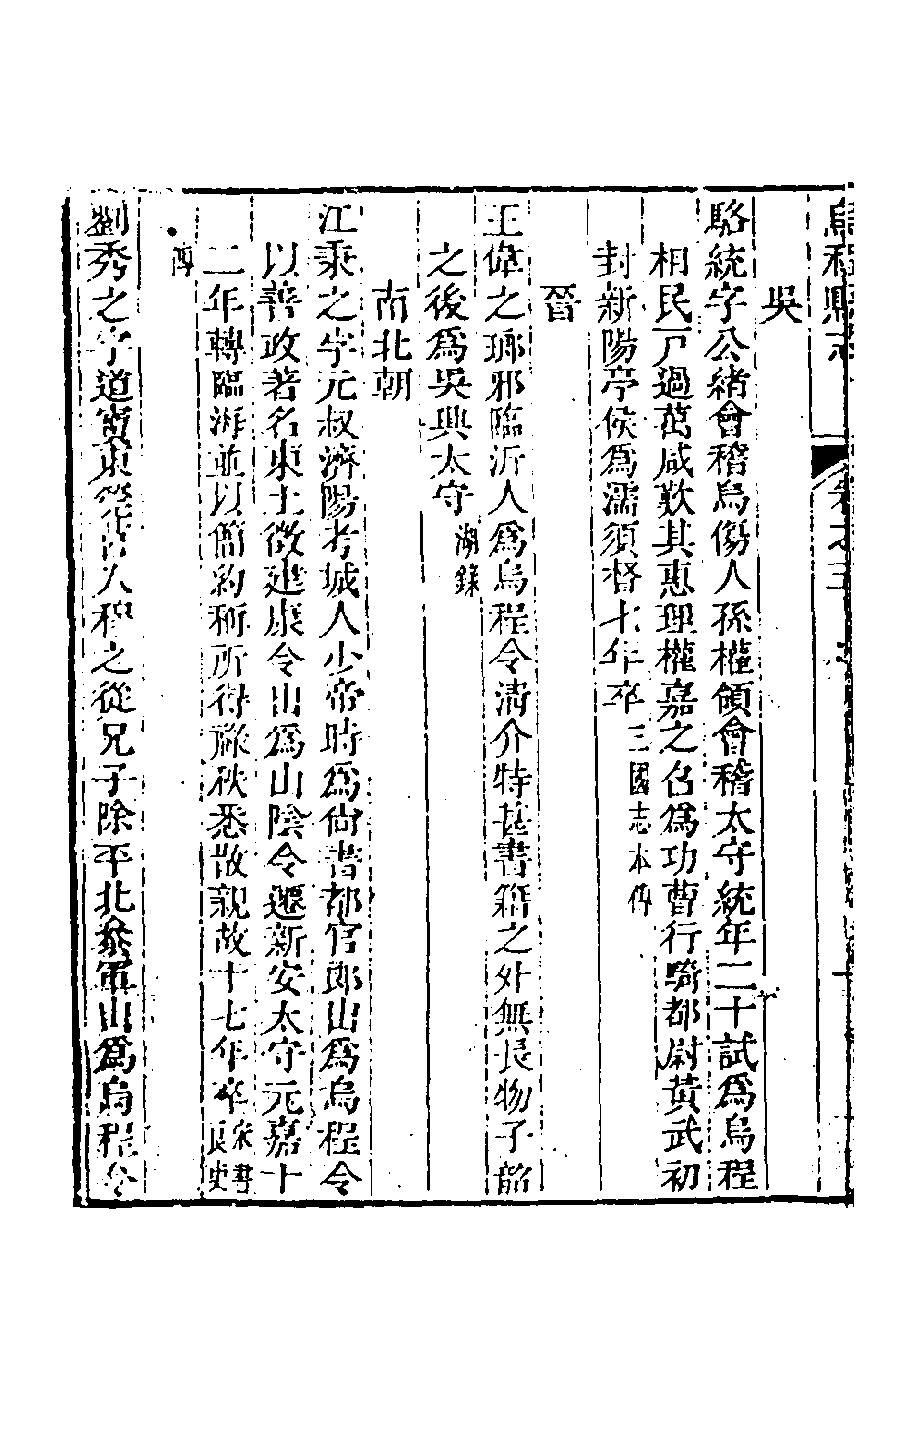 烏程縣志　卷之五
吳
駱統字公緒會稽烏傷人孫權領會稽太守統年二十試爲烏程
相民戸過萬咸歎其惠理權嘉之召爲功曹行騎都尉黃武初
封新陽亭侯爲濡須督七年卒三國志本傳
晉
王偉之瑯邪臨沂人爲烏程令清介特甚書籍之外無長物子韶
之後爲吳興太守湖錄
南北朝
江秉之字元叔濟陽考城人少帝時爲尙書都官郞出爲烏程令
以善政著名東土徵建康令出爲山陰令遷新安太守元嘉十
二年轉臨海並以簡約稱所得祿秩悉散親故十七年卒宋書良吏
傳
劉秀之字道寶東莞莒人穆之從兄子除平北參軍出爲烏程令